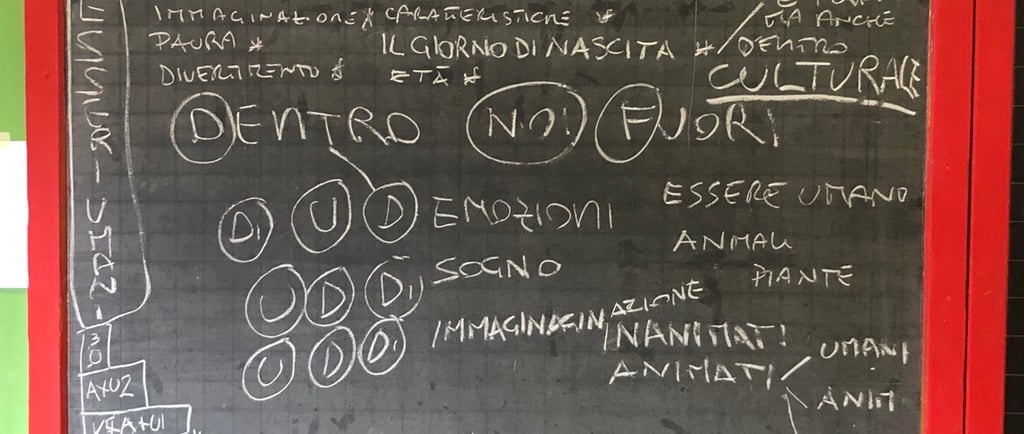 IMMAGINAZIONE * CARATTERISTICHE *
PAURA * IL GIORNO DI NASCITA *
DIVERTIMENTO * ETÀ *
MA ANCHE
DENTRO
CULTURALE
DENTRO NOI FUORI
DI U D EMOZIONI
U D DI SOGNO
U D DI IMMAGINAGINAZIONE
ESSERE UMANO
ANIMALI
PIANTE
INANIMATI
ANIMATI
UMANI
ANIM
ESSERI UMANI